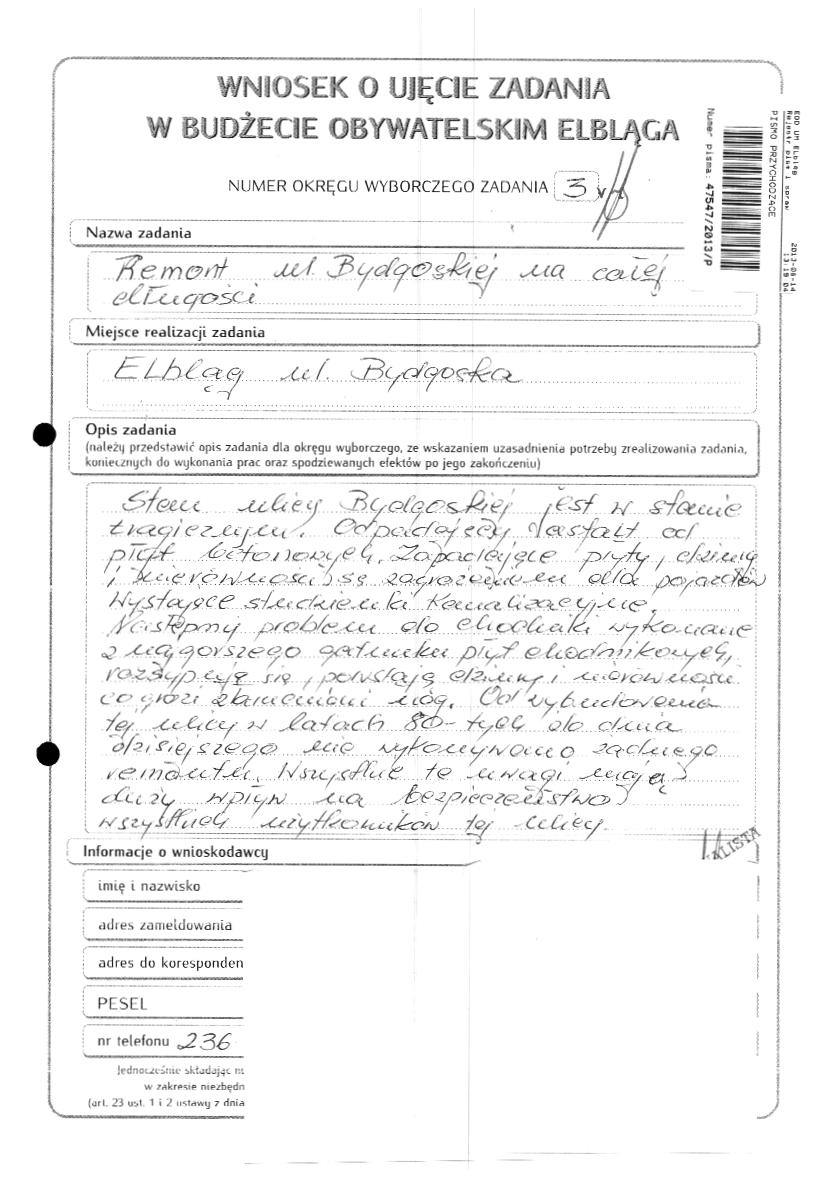 WNIOSEK O UJĘCIE ZADANIA
W BUDŻECIE OBYWATELSKIM ELBLĄGA
NUMER OKRĘGU WYBORCZEGO ZADANIA 3
EDO UM Elbląg
Rejestr pism i spraw
PISMO PRZYCHODZĄCE
2013-06-14
13:19:04
Numer pisma: 47547/2013/P
Nazwa zadania
Remont ul. Bydgoskiej na całej
długości
Miejsce realizacji zadania
ELbląg ul. Bydgoska
Opis zadania
(należy przedstawić opis zadania dla okręgu wyborczego, ze wskazaniem uzasadnienia potrzeby zrealizowania zadania,
koniecznych do wykonania prac oraz spodziewanych efektów po jego zakończeniu)
Stan ulicy Bydgoskiej jest w stanie
tragicznym. Odpadający asfalt od
płyt betonowych. Zapadające płyty, dziury
i nierówności są zagrożeniem dla pojazdów
Wystające studzienki Kanalizacyjne.
Następny problem do chodniki wykonane
z najgorszego gatunku płyt chodnikowych,
rozsypują się, powstają dziury i nierówności
co grozi złamaniami nóg. Od wybudowania
tej ulicy w latach 80-tych do dnia
dzisiejszego nie wykonywano żadnego
remontu. Wszystkie te uwagi mają
duży wpływ na bezpieczeństwo
wszystkich użytkowników tej ulicy.
LISTA
Informacje o wnioskodawcy
imię i nazwisko
adres zameldowania
adres do koresponden
PESEL
nr telefonu 236
Jednocześnie składając
w zakresie niezbędn
(art. 23 ust. 1 i 2 ustawy z dnia